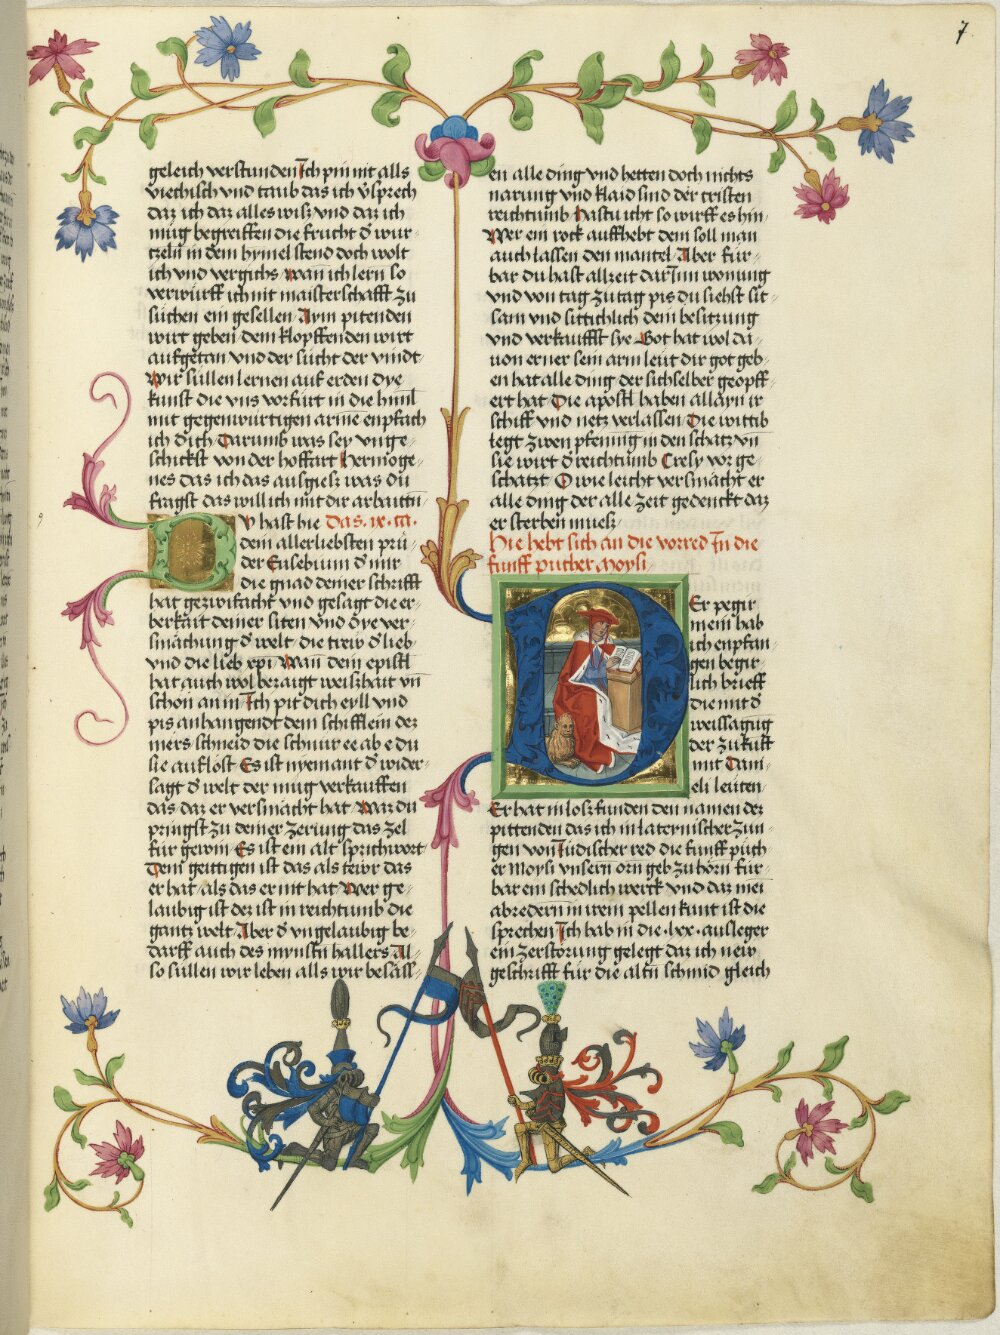 7
geleich verstunden Ich pin nit alls
viechisch vnd taub das ich v̄sprech
daz ich daz alles wisz vnd daz ich
mug begreiffen die frucht d̄ wur
tzeln in dem hymel stend doch wolt
ich vnd vergichs Wan ich lern so
verwürff ich nit maisterschafft zu
suchen ein gesellen Aym pitenden
wirt geben dem klopffenden wirt
aufgetan vnd der sucht der vindt
Wir sullen lernen auf erden dye
kunst die vns
mit gegenwurtigen arme enpfach
ich dich Darumb was sey vnge
schickst von der hoffart Hermoge
nes das ich das ausgiesz was du
fragst das will ich mit dir arbaitn
Dv hast hie Das .ix. ca.
dem allerliebsten prü
der Eusebium d̄ mir
die gnad deiner schrifft
hat gezwifacht vnd gesagt die er
berkait deiner siten vnd dye ver
smachung d̄ welt die trew d̄ lieb
vnd die lieb xpi Wan dem epistl
hat auch wol bezaigt weiszhait vn̄
schon an in Ich pit dich eyll vnd
pis anhangendt dem schifflein dez
mers schneid die schnur ee ab e du
sie auflost Es ist nyemant d̄ wider
sagt d̄ welt der mug verkauffen
das daz er versmacht hat Waz du
pringst zu deiner zerung das zel
für gewin Es ist ein alt sprichwort
Dem geittigen ist das als tewr das
er hat als das er nit hat Wer ge
laubig ist dez ist in reichtumb die
gantz welt Aber d̄ vngelaubig be
darff auch des mynstn hallers Al
so sullen wir leben alls wir besäss
en alle ding vnd hetten doch nichts
narung vnd klaid sind der cristen
reichtumb Hastu icht so wirff es hin
Wer ein rock auffhebt dem soll man
auch lassen den mantel Aber für
bar du hast allzeit darInn wonung
vnd von tag zu tag pis du siehst sit
sam vnd sittichlich dem besitzung
vnd verkauffst sye Got hat wol da
von er ner sein arm leut dir got geb
en hat alle ding der sich selber geopff
ert hat Die apostl haben allayn ir
schiff vnd netz verlassen Die wittib
legt zwen pfennig in den schatz vn̄
sie wirt d̄ reichtumb Cresy vor ge
schatzt O wie leicht versmächt er
alle ding der alle zeit gedenckt daz
er sterben muesz
Hie hebt sich an die vorred In die
funff pucher Moysi
DEr pegir
mein hab
ich enpfan
gen begir
lich brieff
die mit d̄
weissagūg
der zukūft
mit Dani
eli leuten
Er hat in losz funden den namen dez
pittenden das ich in lateinischer zun
gen von Iudischer red die funff püch
er Moysi vnsern orn geb zu hörn für
bar ein schedlich werck vnd daz mei
abredern in irem pellen kunt ist die
sprechen Ich hab in die .lxx. ausleger
ein zerstorung gelegt daz ich new
geschrifft für die altn̄ schmid gleich